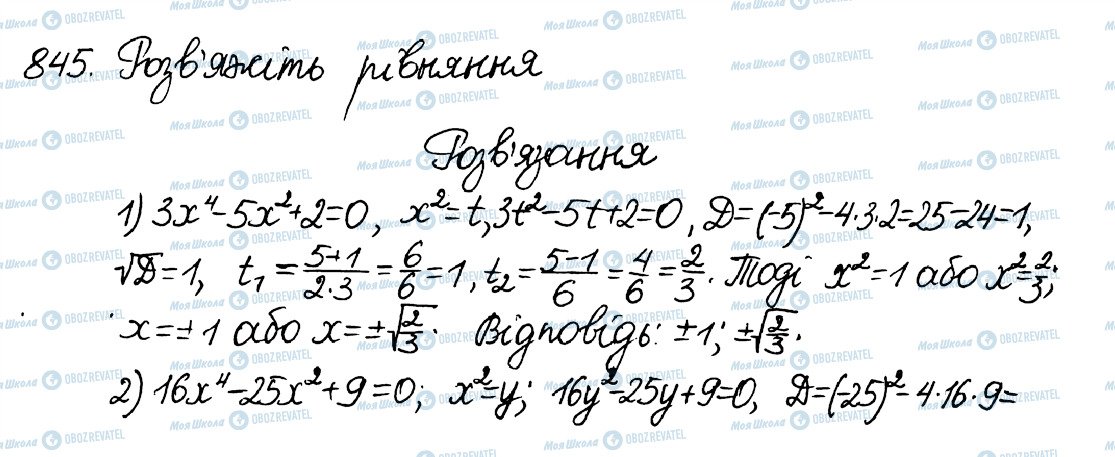 845. Розв'яжіть рівняння
Розв'язання
1) 3x⁴-5x²+2=0, x²=t, 3t²-5t+2=0, D=(-5)²-4·3·2=25-24=1,
√D=1, t₁=(5+1)/(2·3)=6/6=1, t₂=(5-1)/6=4/6=2/3. Тоді x²=1 або x²=2/3;
x=±1 або x=±√(2/3). Відповідь: ±1; ±√(2/3).
2) 16x⁴-25x²+9=0; x²=y; 16y²-25y+9=0, D=(-25)²-4·16·9=
Моя Школа OBOZREVATEL